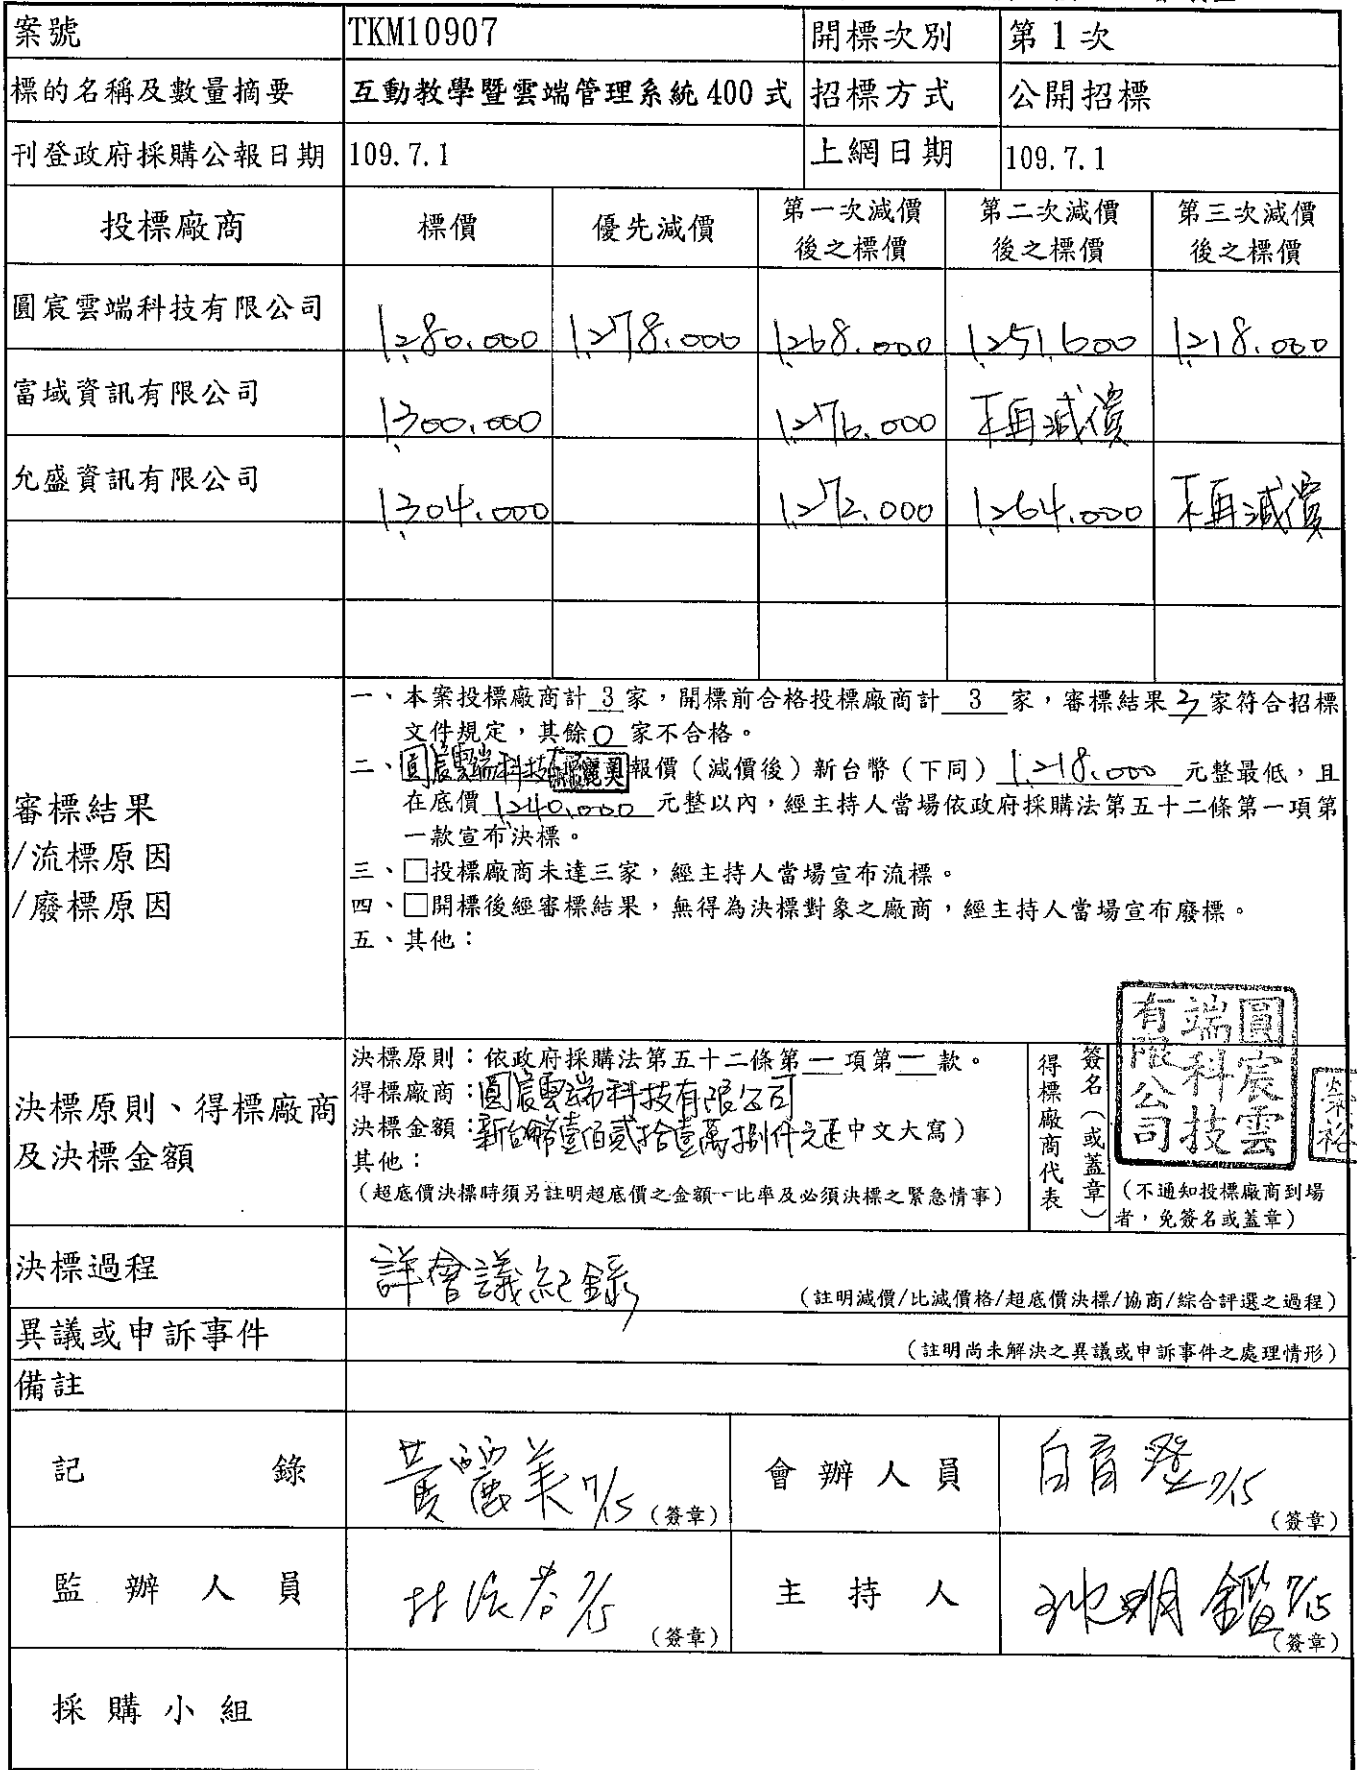 案號 TKM10907 開標次別 第1次
標的名稱及數量摘要 互動教學暨雲端管理系統400式 招標方式 公開招標
刊登政府採購公報日期 109.7.1 上網日期 109.7.1
投標廠商 標價 優先減價 第一次減價後之標價 第二次減價後之標價 第三次減價後之標價
圓宸雲端科技有限公司 1,280,000 1,278,000 1,268,000 1,251,600 1,218,000
富域資訊有限公司 1,300,000 1,276,000 不再減價
允盛資訊有限公司 1,304,000 1,272,000 1,264,000 不再減價
審標結果
/流標原因
/廢標原因
一、本案投標廠商計 3 家，開標前合格投標廠商計 3 家，審標結果 3 家符合招標
文件規定，其餘 0 家不合格。
二、圓宸雲端科技 報價（減價後）新台幣（下同）1,218,000 元整最低，且
在底價 1,240,000 元整以內，經主持人當場依政府採購法第五十二條第一項第
一款宣布決標。
三、□投標廠商未達三家，經主持人當場宣布流標。
四、□開標後經審標結果，無得為決標對象之廠商，經主持人當場宣布廢標。
五、其他：
決標原則、得標廠商
及決標金額
決標原則：依政府採購法第五十二條第一項第一款。
得標廠商：圓宸雲端科技有限公司
決標金額：新台幣壹佰貳拾壹萬捌仟元正 中文大寫）
其他：
（超底價決標時須另註明超底價之金額、比率及必須決標之緊急情事）
得標廠商代表
簽名（或蓋章）
圓宸雲
端科技
有限公司
（不通知投標廠商到場
者，免簽名或蓋章）
決標過程 詳會議紀錄 （註明減價/比減價格/超底價決標/協商/綜合評選之過程）
異議或申訴事件 （註明尚未解決之異議或申訴事件之處理情形）
備註
記錄 黃麗美 7/15 （簽章） 會辦人員 白育澄 7/15 （簽章）
監辦人員 7/15 （簽章） 主持人 明鑑 7/15 （簽章）
採購小組